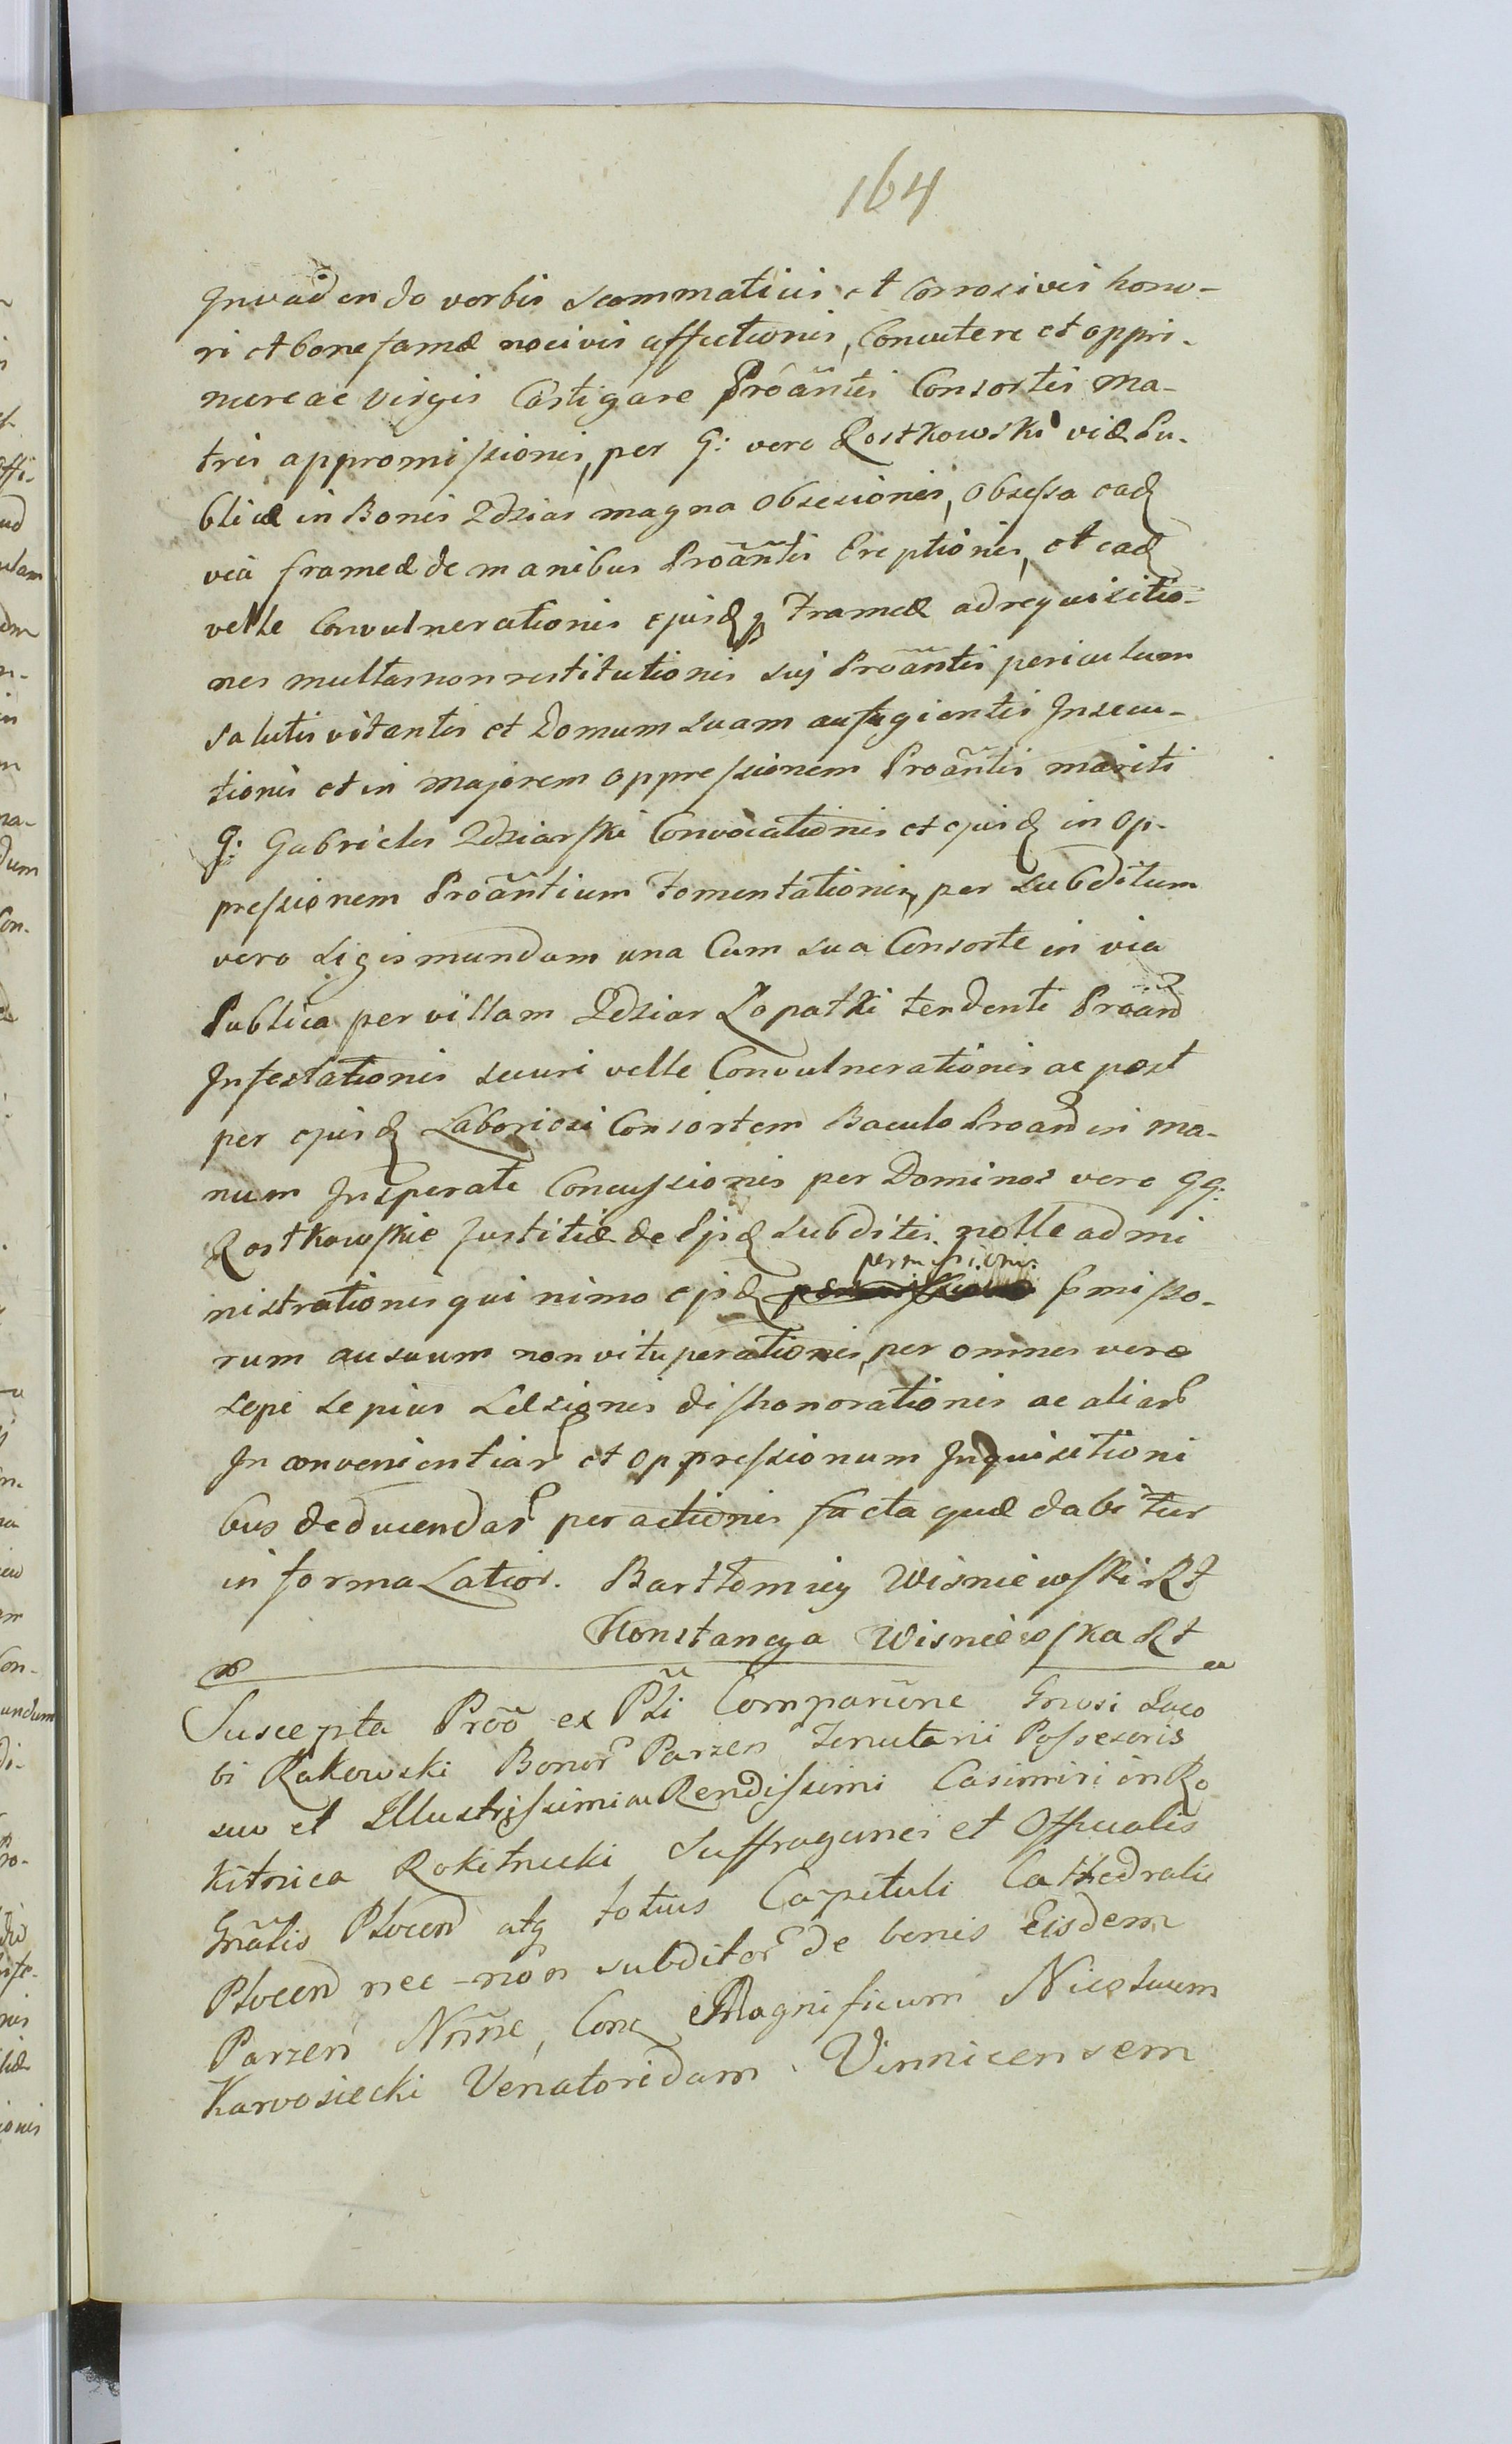 164
Invadendo verbis scommaticis et corrosivis hono-
ri et bone famæ nocivis affectionis, Concutere et oppri-
mere ac virgis Castigare Proãntis Consortis ma-
tris appromissionis, per G: vero Rostkowski viæ Pu-
blicæ in Bonis Zdziar magna obsesionis, obsessa eadȝ
via frameæ de manibus Proãntis Ereptionis, et eadȝ
velle Convulnerationis ejusdȝ Frameæ ad requisitio-
nes multas non restitutionis suj Proãntis periculum
salutis vitantis et Domum suam aufugientis Insecu-
tionis et in majorem oppressionem Proãntis mariti
G: Gabrielis Zdziarski Convocationis et ejusdȝ in op-
pressionem Proãntium Fomentationis, per subditum
vero Sigismundum una Cum sua Consorte in via
Publica per villam Zdziar Łopatki tendenti Proãn
Infestationis securi velle Convulnerationis ac post
per ejusdȝ Laboriosi Consortem Baculo Proan in ma-
num Insperate Concussionis per Dominos vero GG:
Rostkowskie Justitiæ de Ejsdȝ subditis nolle admi
nistrationis qui nimo ejsdȝ permissionis Commisso-
rum ausuum non vituperationis, per omnes vero
sepe sepius Læsionis dishonorationis ac aliar
Inconvenientiar et oppressionum Inquisitioni
bus deducendar peractionis facta quæ dabitur
in forma Latior. Bartłomiey Wisniewski Rt
Konstancya Wisniewska Rt
Suscepta Proõ ex Płi Comparñne Gnosi Jaco
bi Rakowski Bonor Parzen Tenutarii Possesoris
suo et Illustrissimi ac Rendissimi Casimiri in Ro
kitnica Rokitnicki Suffraganei et Officialis
Gnãlis Plocen atq totius Capituli Cathedralis
Plocen nec-non subditor de bonis Eisdem
Parzen Nõine, Cone Magnificum Nicolaum
Karwosiecki Venatoridam Vinnicensem